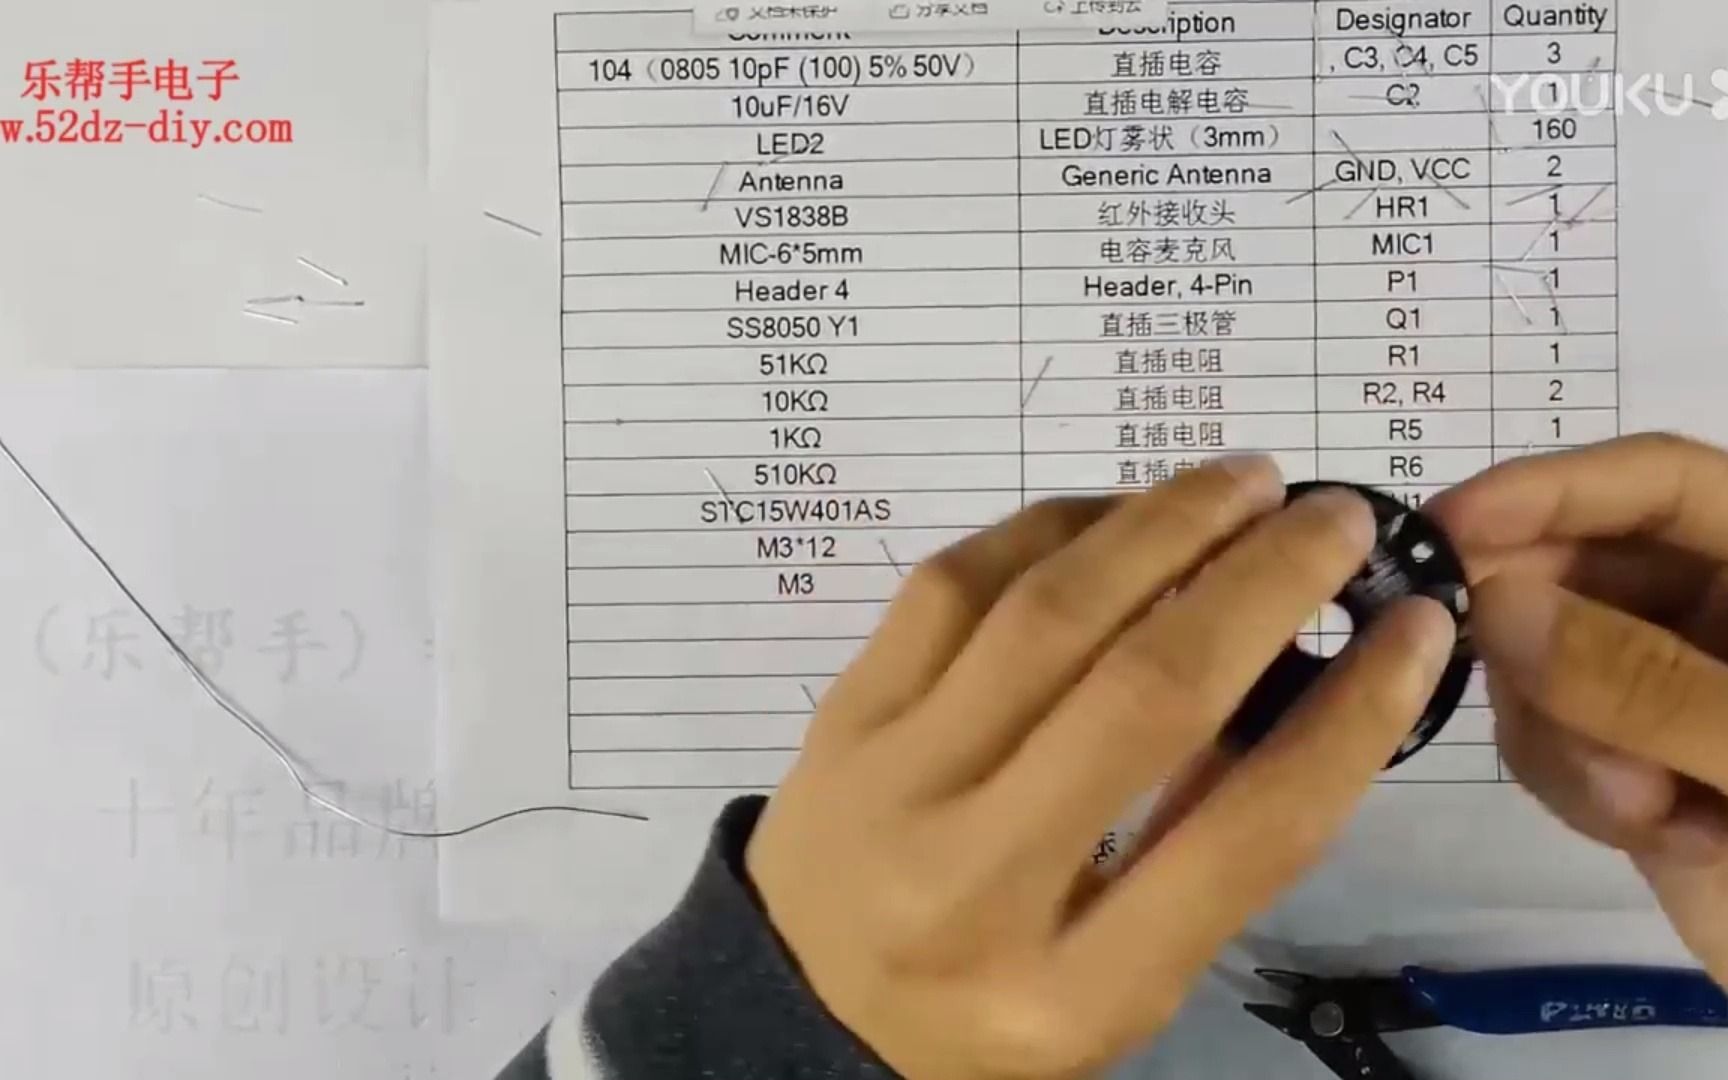 文档未保护 分享文档 上传到云
Comment Description Designator Quantity
乐帮手电子
w.52dz-diy.com
YOUKU
104（0805 10pF (100) 5% 50V） 直插电容 , C3, C4, C5 3
10uF/16V 直插电解电容 C2 1
LED2 LED灯雾状（3mm） 160
Antenna Generic Antenna GND, VCC 2
VS1838B 红外接收头 HR1 1
MIC-6*5mm 电容麦克风 MIC1 1
Header 4 Header, 4-Pin P1 1
SS8050 Y1 直插三极管 Q1 1
51KΩ 直插电阻 R1 1
10KΩ 直插电阻 R2, R4 2
1KΩ 直插电阻 R5 1
510KΩ 直插电 R6
STC15W401AS U1
M3*12
M3
（乐帮手）
十年品牌
原创设计